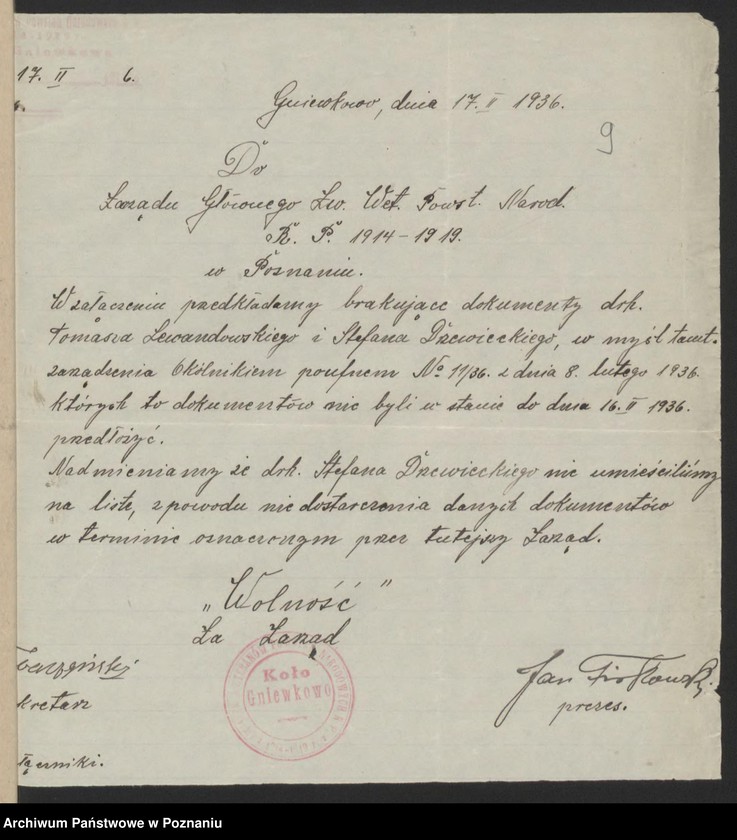 Gniewkowo
17. II 6.
Gniewkowo, dnia 17. II 1936.
9
Do
Zarządu Głównego Zw. Wet. Powst. Narod.
R. P. 1914-1919.
w Poznaniu.
W załączeniu przedkładamy brakujące dokumenty drh.
Tomasza Lewandowskiego i Stefana Drzewieckiego, w myśl tamt.
zarządzenia Okólnikiem poufnem No 11/36. z dnia 8. lutego 1936.
których to dokumentów nie byli w stanie do dnia 16. II 1936.
przedłożyć.
Nadmieniamy że drh. Stefana Drzewieckiego nie umieściliśmy
na liste, z powodu nie dostarczenia danych dokumentów
w terminie oznaczonym przez tutejszy Zarząd.
„Wolność”
Za Zarząd
Koło
Gniewkowo
kretarz
Jan
prezes.
łączniki.
Archiwum Państwowe w Poznaniu